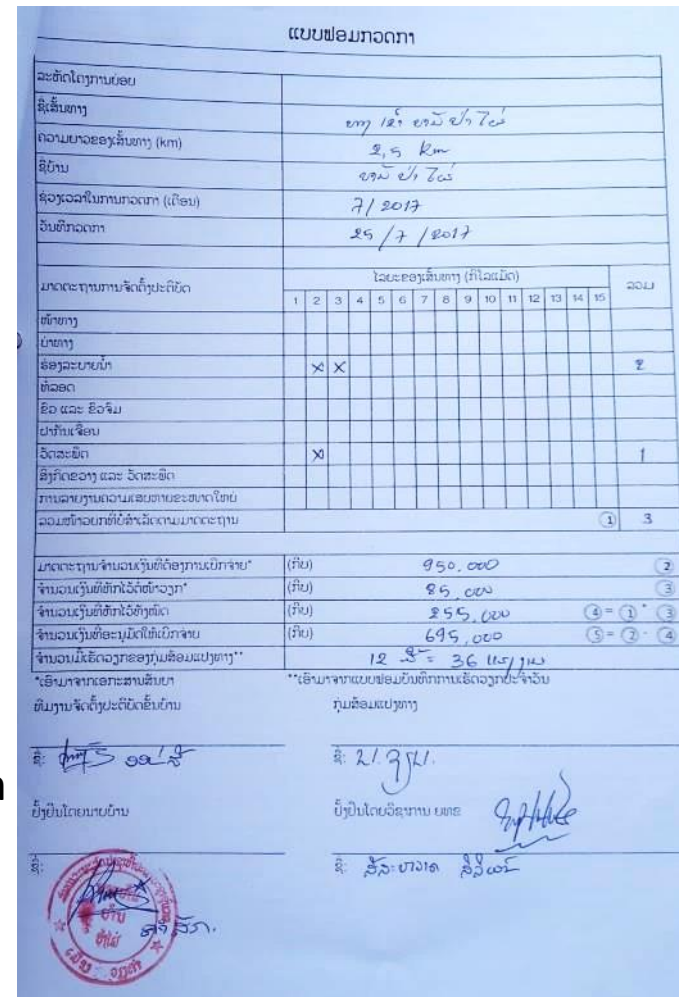 ແບບຟອມກວດກາ
ລະຫັດໂຄງການຍ່ອຍ
ຊື່ເສັ້ນທາງ ທາງ ເຂົ້າ ບ້ານ ປ່າ ໄຜ່
ຄວາມຍາວຂອງເສັ້ນທາງ (km) 2,5 km
ຊື່ບ້ານ ບ້ານ ປ່າ ໄຜ່
ຊ່ວງເວລາໃນການກວດກາ (ເດືອນ) 7/2017
ວັນທີກວດກາ 25/7/2017
ມາດຕະຖານການຈັດຕັ້ງປະຕິບັດ ໄລຍະຂອງເສັ້ນທາງ (ກິໂລແມັດ) ລວມ
1 2 3 4 5 6 7 8 9 10 11 12 13 14 15
ໜ້າທາງ
ບ່າທາງ
ຮ່ອງລະບາຍນ້ຳ X X 2
ທໍ່ລອດ
ຂົວ ແລະ ຂົວຈົມ
ຝາກັນເຈື່ອນ
ວັດສະພືດ X 1
ສິ່ງກີດຂວາງ ແລະ ວັດສະພືດ
ການລາຍງານຄວາມເສຍຫາຍຂະໜາດໃຫຍ່
ລວມໜ້າວຽກທີ່ບໍ່ສຳເລັດຕາມມາດຕະຖານ ① 3
ມາດຕະຖານຈຳນວນເງິນທີ່ຕ້ອງການເບີກຈ່າຍ* (ກີບ) 950.000 ②
ຈຳນວນເງິນທີ່ຫັກໄວ້ຕໍ່ໜ້າວຽກ* (ກີບ) 85,000 ③
ຈຳນວນເງິນທີ່ຫັກໄວ້ທັງໝົດ (ກີບ) 255,000 ④ = ① * ③
ຈຳນວນເງິນທີ່ອະນຸມັດໃຫ້ເບີກຈ່າຍ (ກີບ) 695,000 ⑤ = ② - ④
ຈຳນວນມື້ເຮັດວຽກຂອງກຸ່ມສ້ອມແປງທາງ** 12 ມື້ = 36 ແຮງງານ
*ເອົາມາຈາກເອກະສານສັນຍາ **ເອົາມາຈາກແບບຟອມບັນທຶກການເຮັດວຽກປະຈຳວັນ
ທີມງານຈັດຕັ້ງປະຕິບັດຂັ້ນບ້ານ ກຸ່ມສ້ອມແປງທາງ
ຊື່: ຊື່:
ຢັ້ງຢືນໂດຍນາຍບ້ານ ຢັ້ງຢືນໂດຍວິຊາການ ຍທຂ
ຊື່: ຊື່: